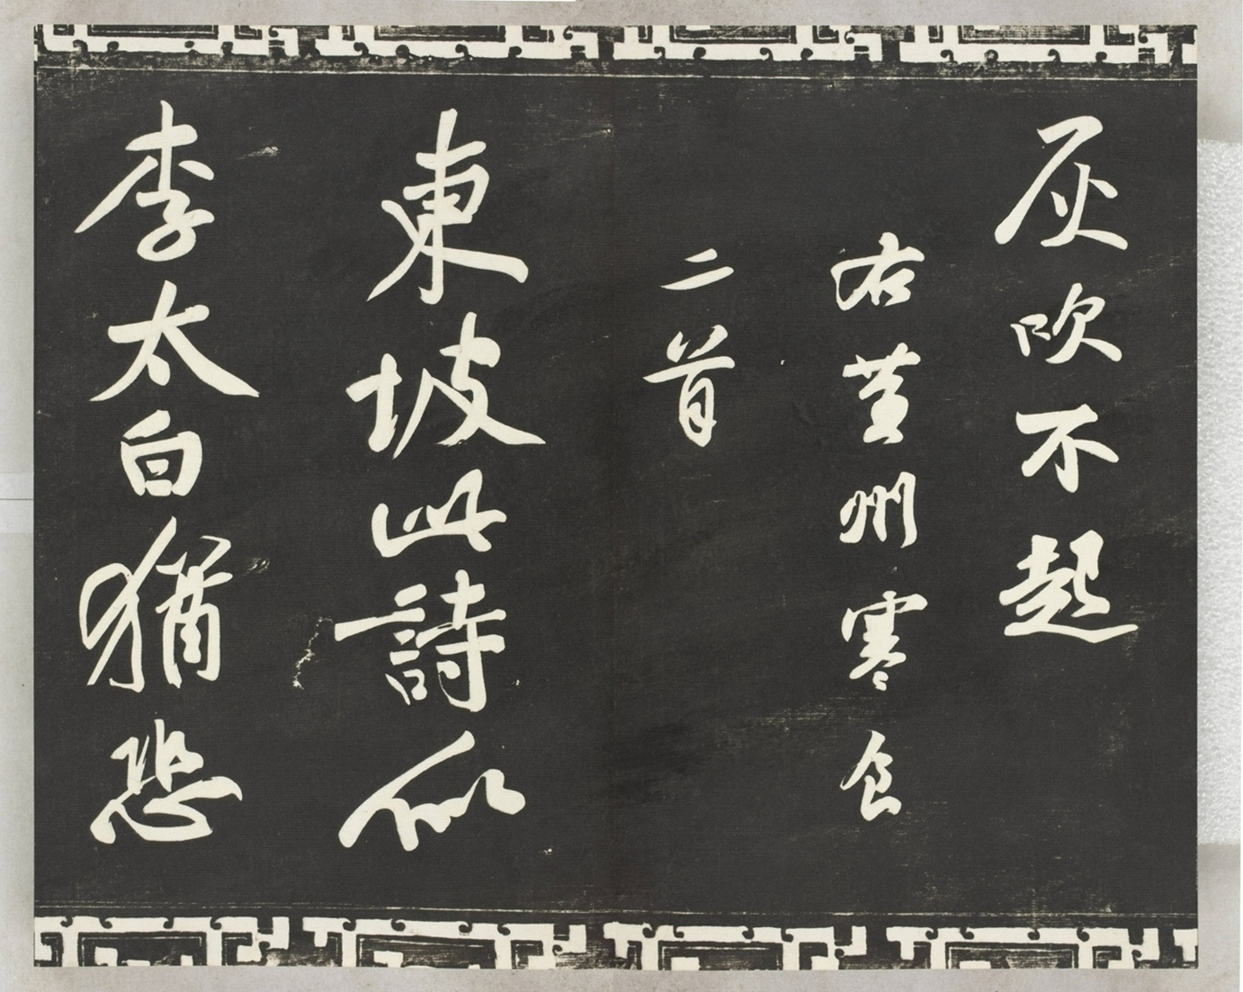 灰吹不起
右黄州寒食
二首
東坡此詩似
李太白猶恐